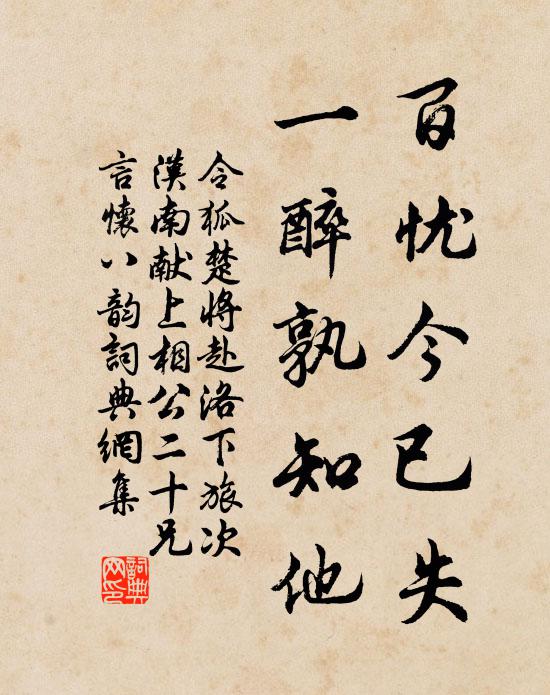 百忧今已失
一醉孰知他
令狐楚将赴洛下旅次
漢南献上相公二十兄
言懷八韵詞典網集
詞典网印